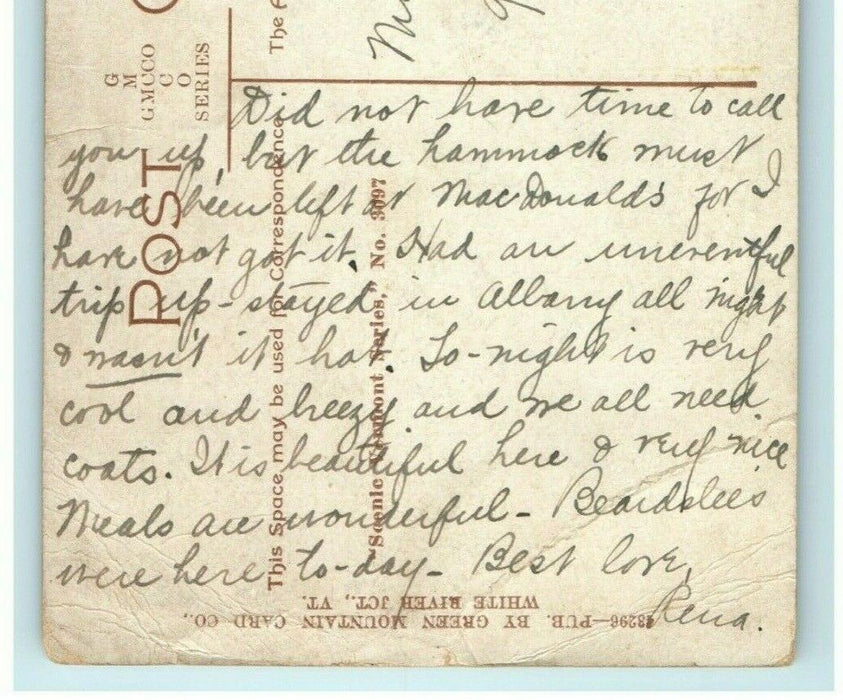 Did not have time to call
you up, but the hammock must
have been left at MacDonalds for I
have not got it. Had an uneventful
trip up - stayed in Albany all night
& wasn't it hot. To-night is very
cool and breezy and we all need
coats. It is beautiful here & very nice
Meals are wonderful - Beardslee's
were here to-day - Best love,
Rena.
POST C
G
M
GMCCO
C
O
SERIES
The A
This Space may be used for Correspondence
"Scenic Vermont Series," No. 3097
48296—PUB. BY GREEN MOUNTAIN CARD CO.,
WHITE RIVER JCT., VT.